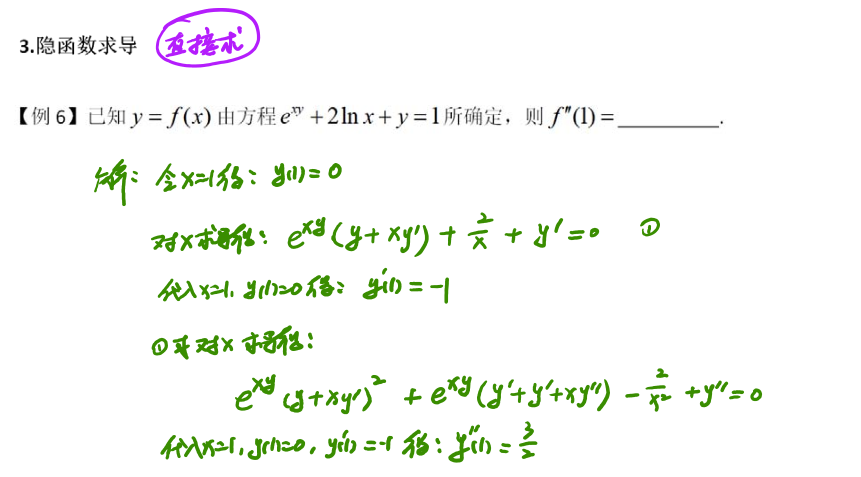 3.隐函数求导 直接求
【例 6】已知 y = f(x) 由方程 e^{xy} + 2ln x + y = 1 所确定，则 f″(1) = ________.
解：令x=1得：y(1)=0
对x求导得：e^{xy}(y+xy′) + 2/x + y′=0 ①
代入x=1, y(1)=0得：y′(1)=-1
①式对x求导得：
e^{xy}(y+xy′)² + e^{xy}(y′+y′+xy″) - 2/x² + y″=0
代入x=1, y(1)=0, y′(1)=-1 得：y″(1)=3/2